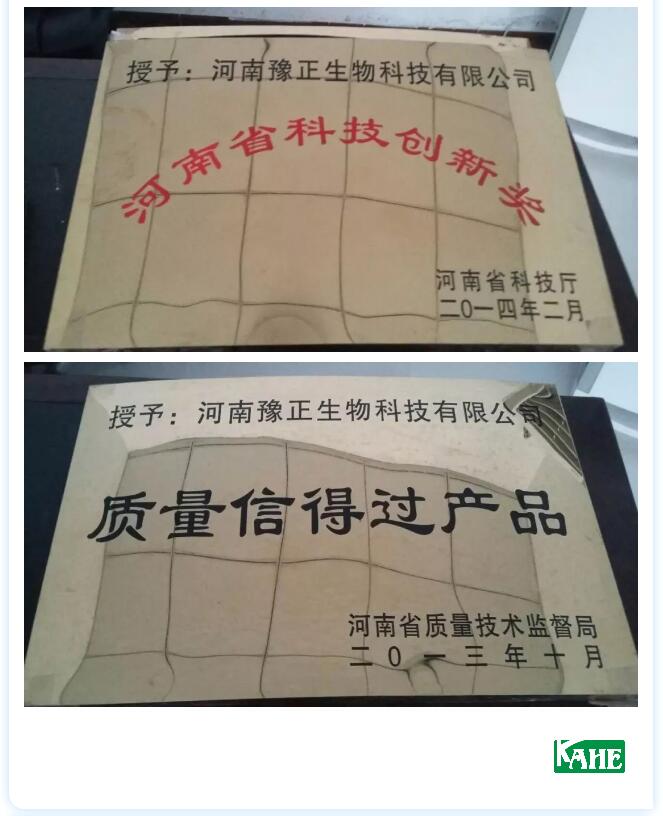 授予：河南豫正生物科技有限公司
河南省科技创新奖
河南省科技厅
二0一四年二月
授予：河南豫正生物科技有限公司
质量信得过产品
河南省质量技术监督局
二0一三年十月
KAHE